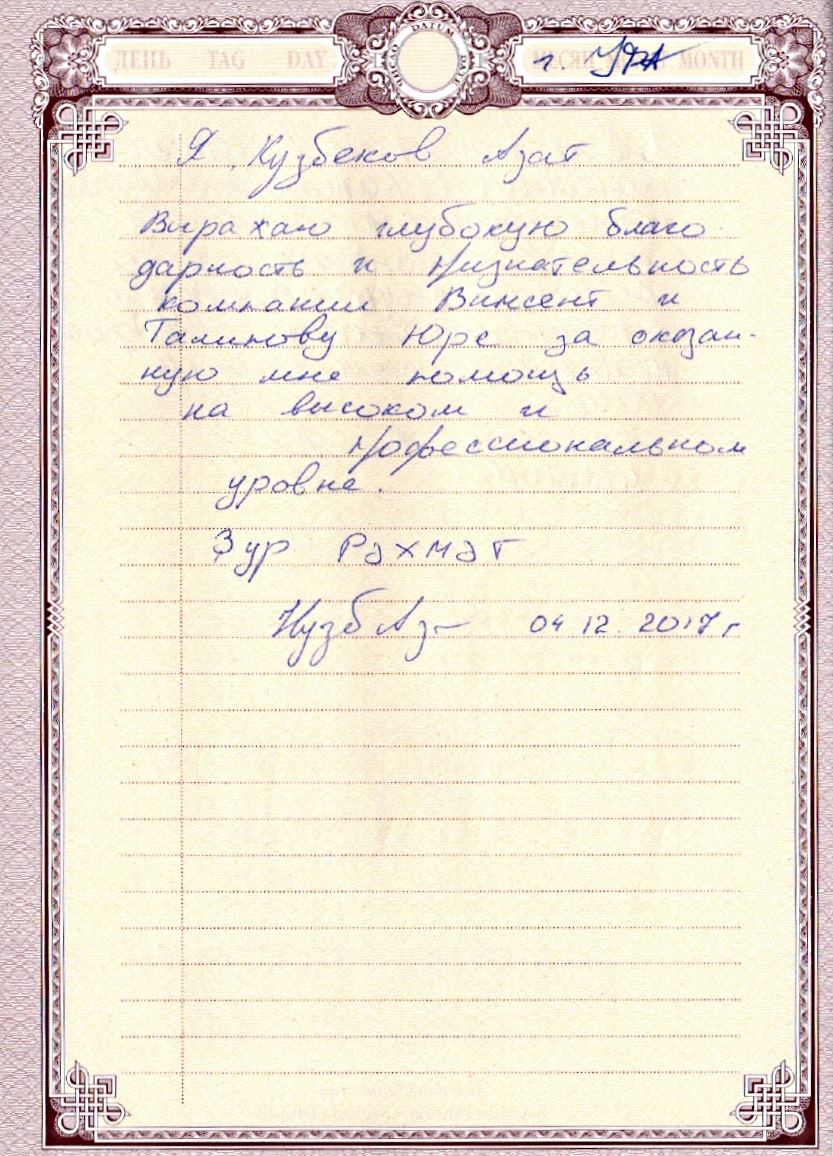 ДЕНЬ TAG DAY DATUM DATE МЕСЯЦ MONTH
г. УФА
Я, Кузбеков Азат
Выражаю глубокую благо-
дарность и признательность
компании Винсент и
Галимову Юре за оказан-
ную мне помощь
на высоком и
профессиональном
уровне.
Зур Рәхмәт
Кузб Аз 04 12. 2017 г